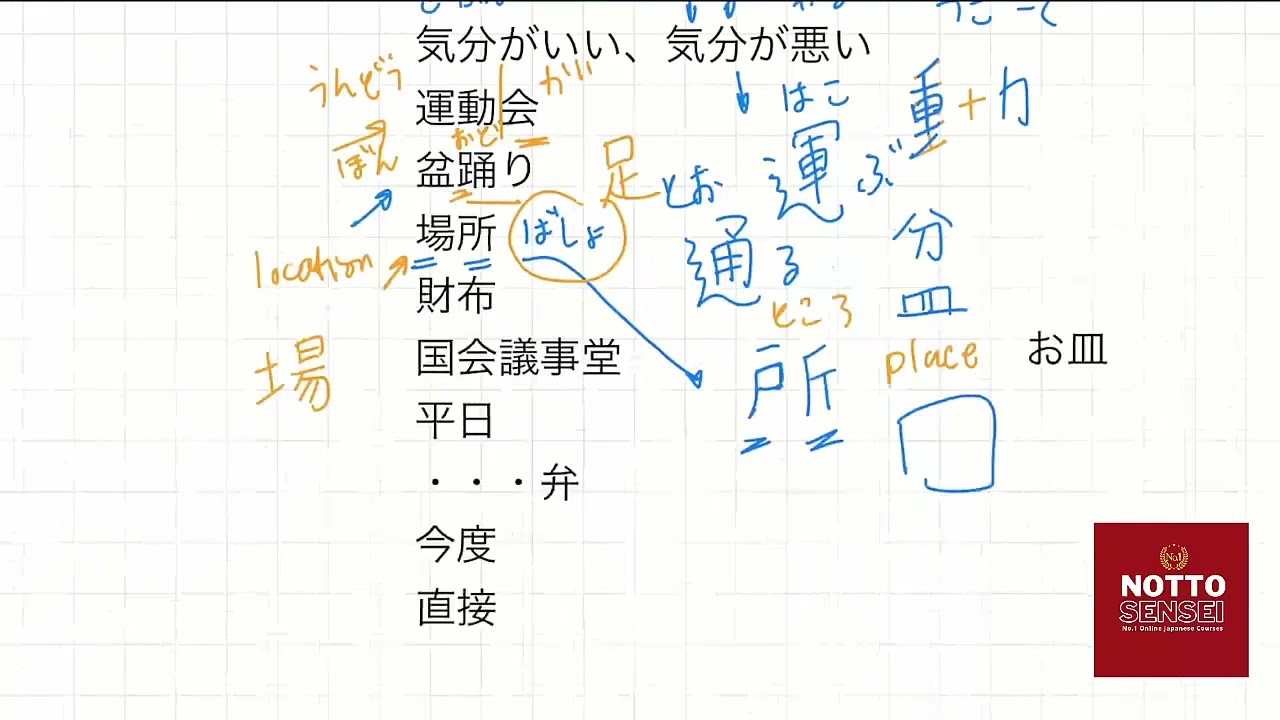 気分がいい、気分が悪い
うんどう
かい
運動会
はこ
運ぶ
重+力
ぼん
おど
盆踊り
足
とお
通る
分
皿
場所
ばしょ
location
財布
ところ
所
place
お皿
場
国会議事堂
平日
・・・弁
今度
直接
No.1
NOTTO
SENSEI
No.1 Online Japanese Courses